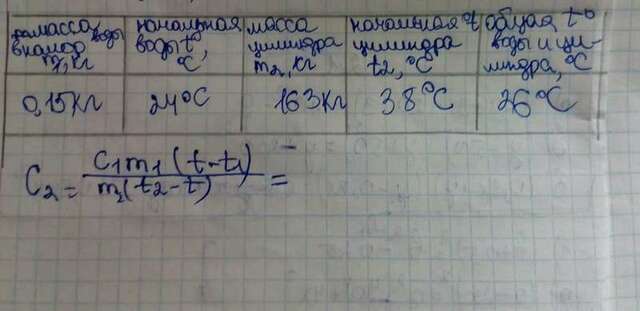 масса воды
m₁, кг
начальная
воды t,
°C
масса
цилиндра
m₂, кг
начальная t
цилиндра
t₂, °C
общая t°
воды и ци-
линдра, °C
0,15кг
24°C
163кг
38°C
26°C
C₂ = C₁m₁(t-t₁) / m₂(t₂-t) =